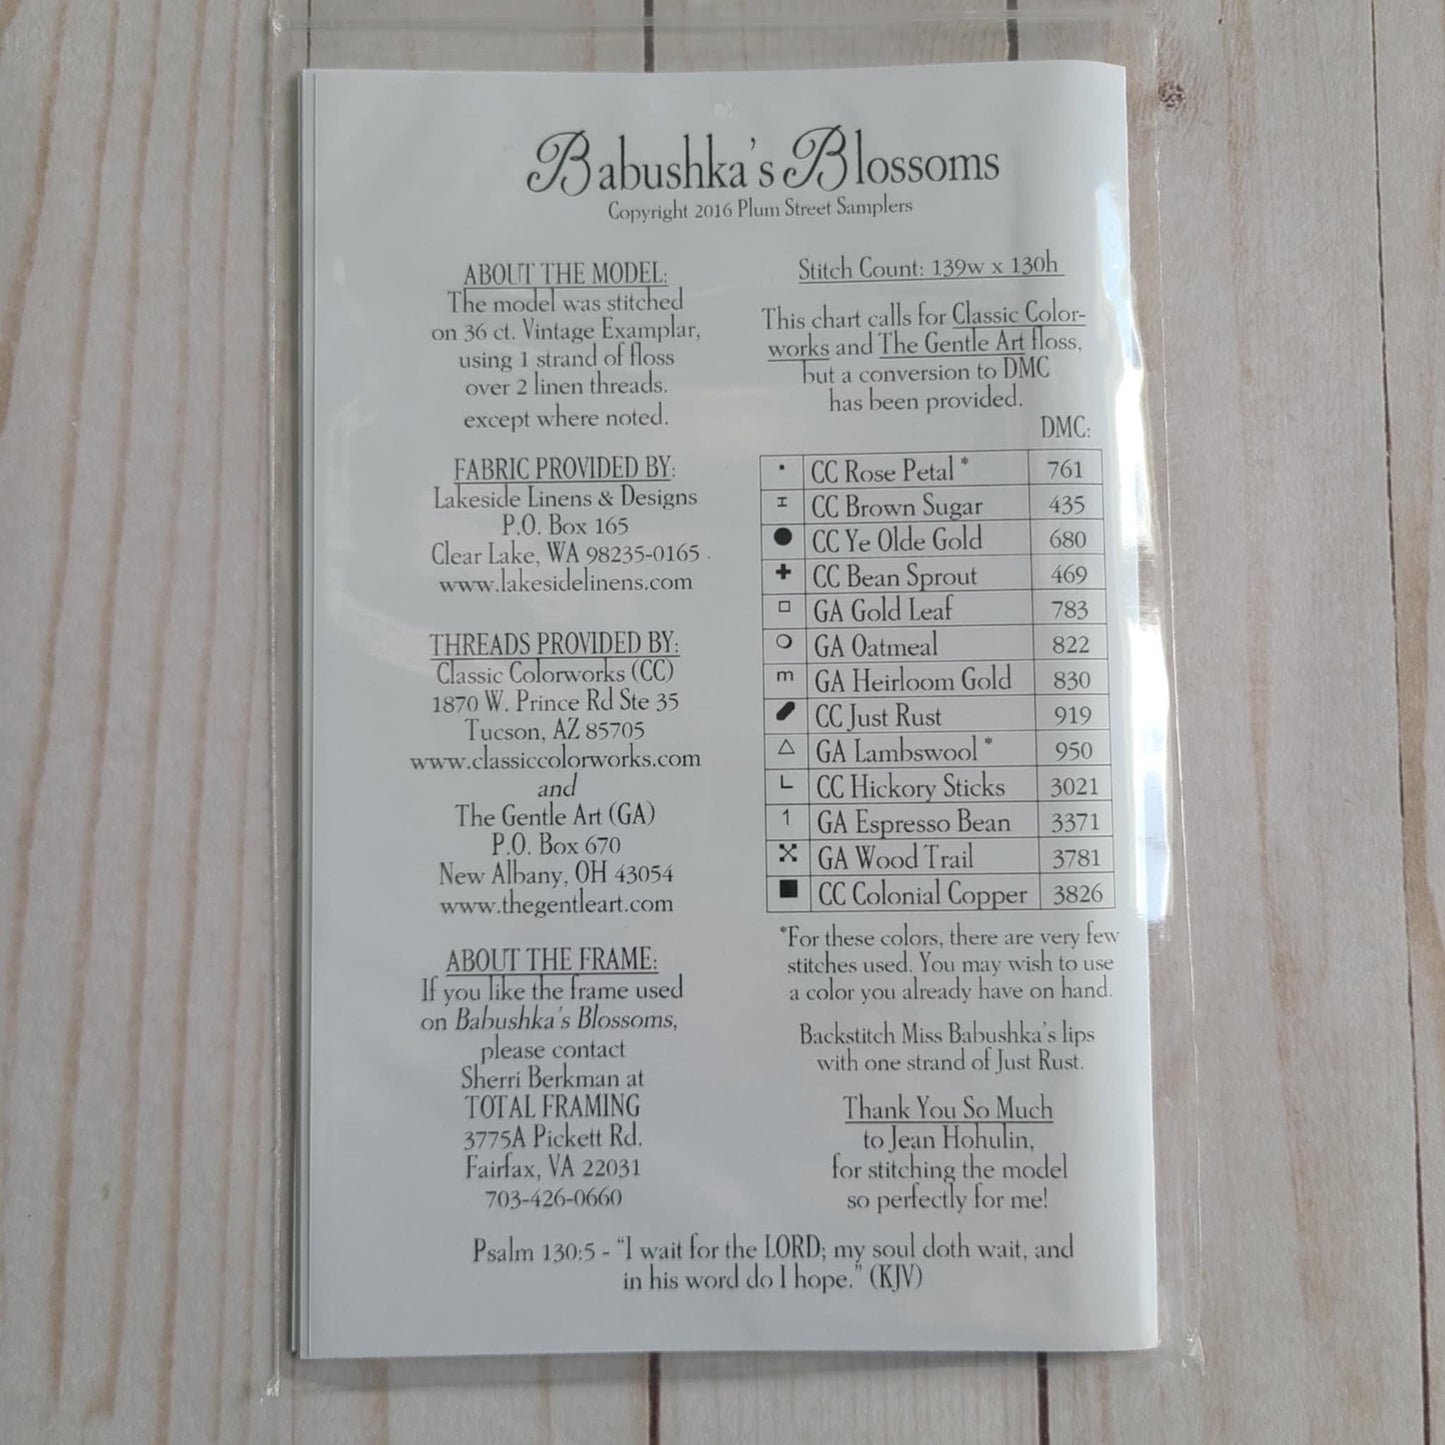 Babushka's Blossoms
Copyright 2016 Plum Street Samplers
ABOUT THE MODEL:
The model was stitched
on 36 ct. Vintage Examplar,
using 1 strand of floss
over 2 linen threads.
except where noted.
FABRIC PROVIDED BY:
Lakeside Linens & Designs
P.O. Box 165
Clear Lake, WA 98235-0165
www.lakesidelinens.com
THREADS PROVIDED BY:
Classic Colorworks (CC)
1870 W. Prince Rd Ste 35
Tucson, AZ 85705
www.classiccolorworks.com
and
The Gentle Art (GA)
P.O. Box 670
New Albany, OH 43054
www.thegentleart.com
ABOUT THE FRAME:
If you like the frame used
on Babushka's Blossoms,
please contact
Sherri Berkman at
TOTAL FRAMING
3775A Pickett Rd.
Fairfax, VA 22031
703-426-0660
Stitch Count: 139w x 130h
This chart calls for Classic Color-
works and The Gentle Art floss,
but a conversion to DMC
has been provided.
DMC:
▪ CC Rose Petal * 761
⌶ CC Brown Sugar 435
● CC Ye Olde Gold 680
✚ CC Bean Sprout 469
□ GA Gold Leaf 783
❍ GA Oatmeal 822
m GA Heirloom Gold 830
CC Just Rust 919
△ GA Lambswool * 950
L CC Hickory Sticks 3021
1 GA Espresso Bean 3371
GA Wood Trail 3781
■ CC Colonial Copper 3826
*For these colors, there are very few
stitches used. You may wish to use
a color you already have on hand.
Backstitch Miss Babushka's lips
with one strand of Just Rust.
Thank You So Much
to Jean Hohulin,
for stitching the model
so perfectly for me!
Psalm 130:5 - "I wait for the LORD; my soul doth wait, and
in his word do I hope." (KJV)